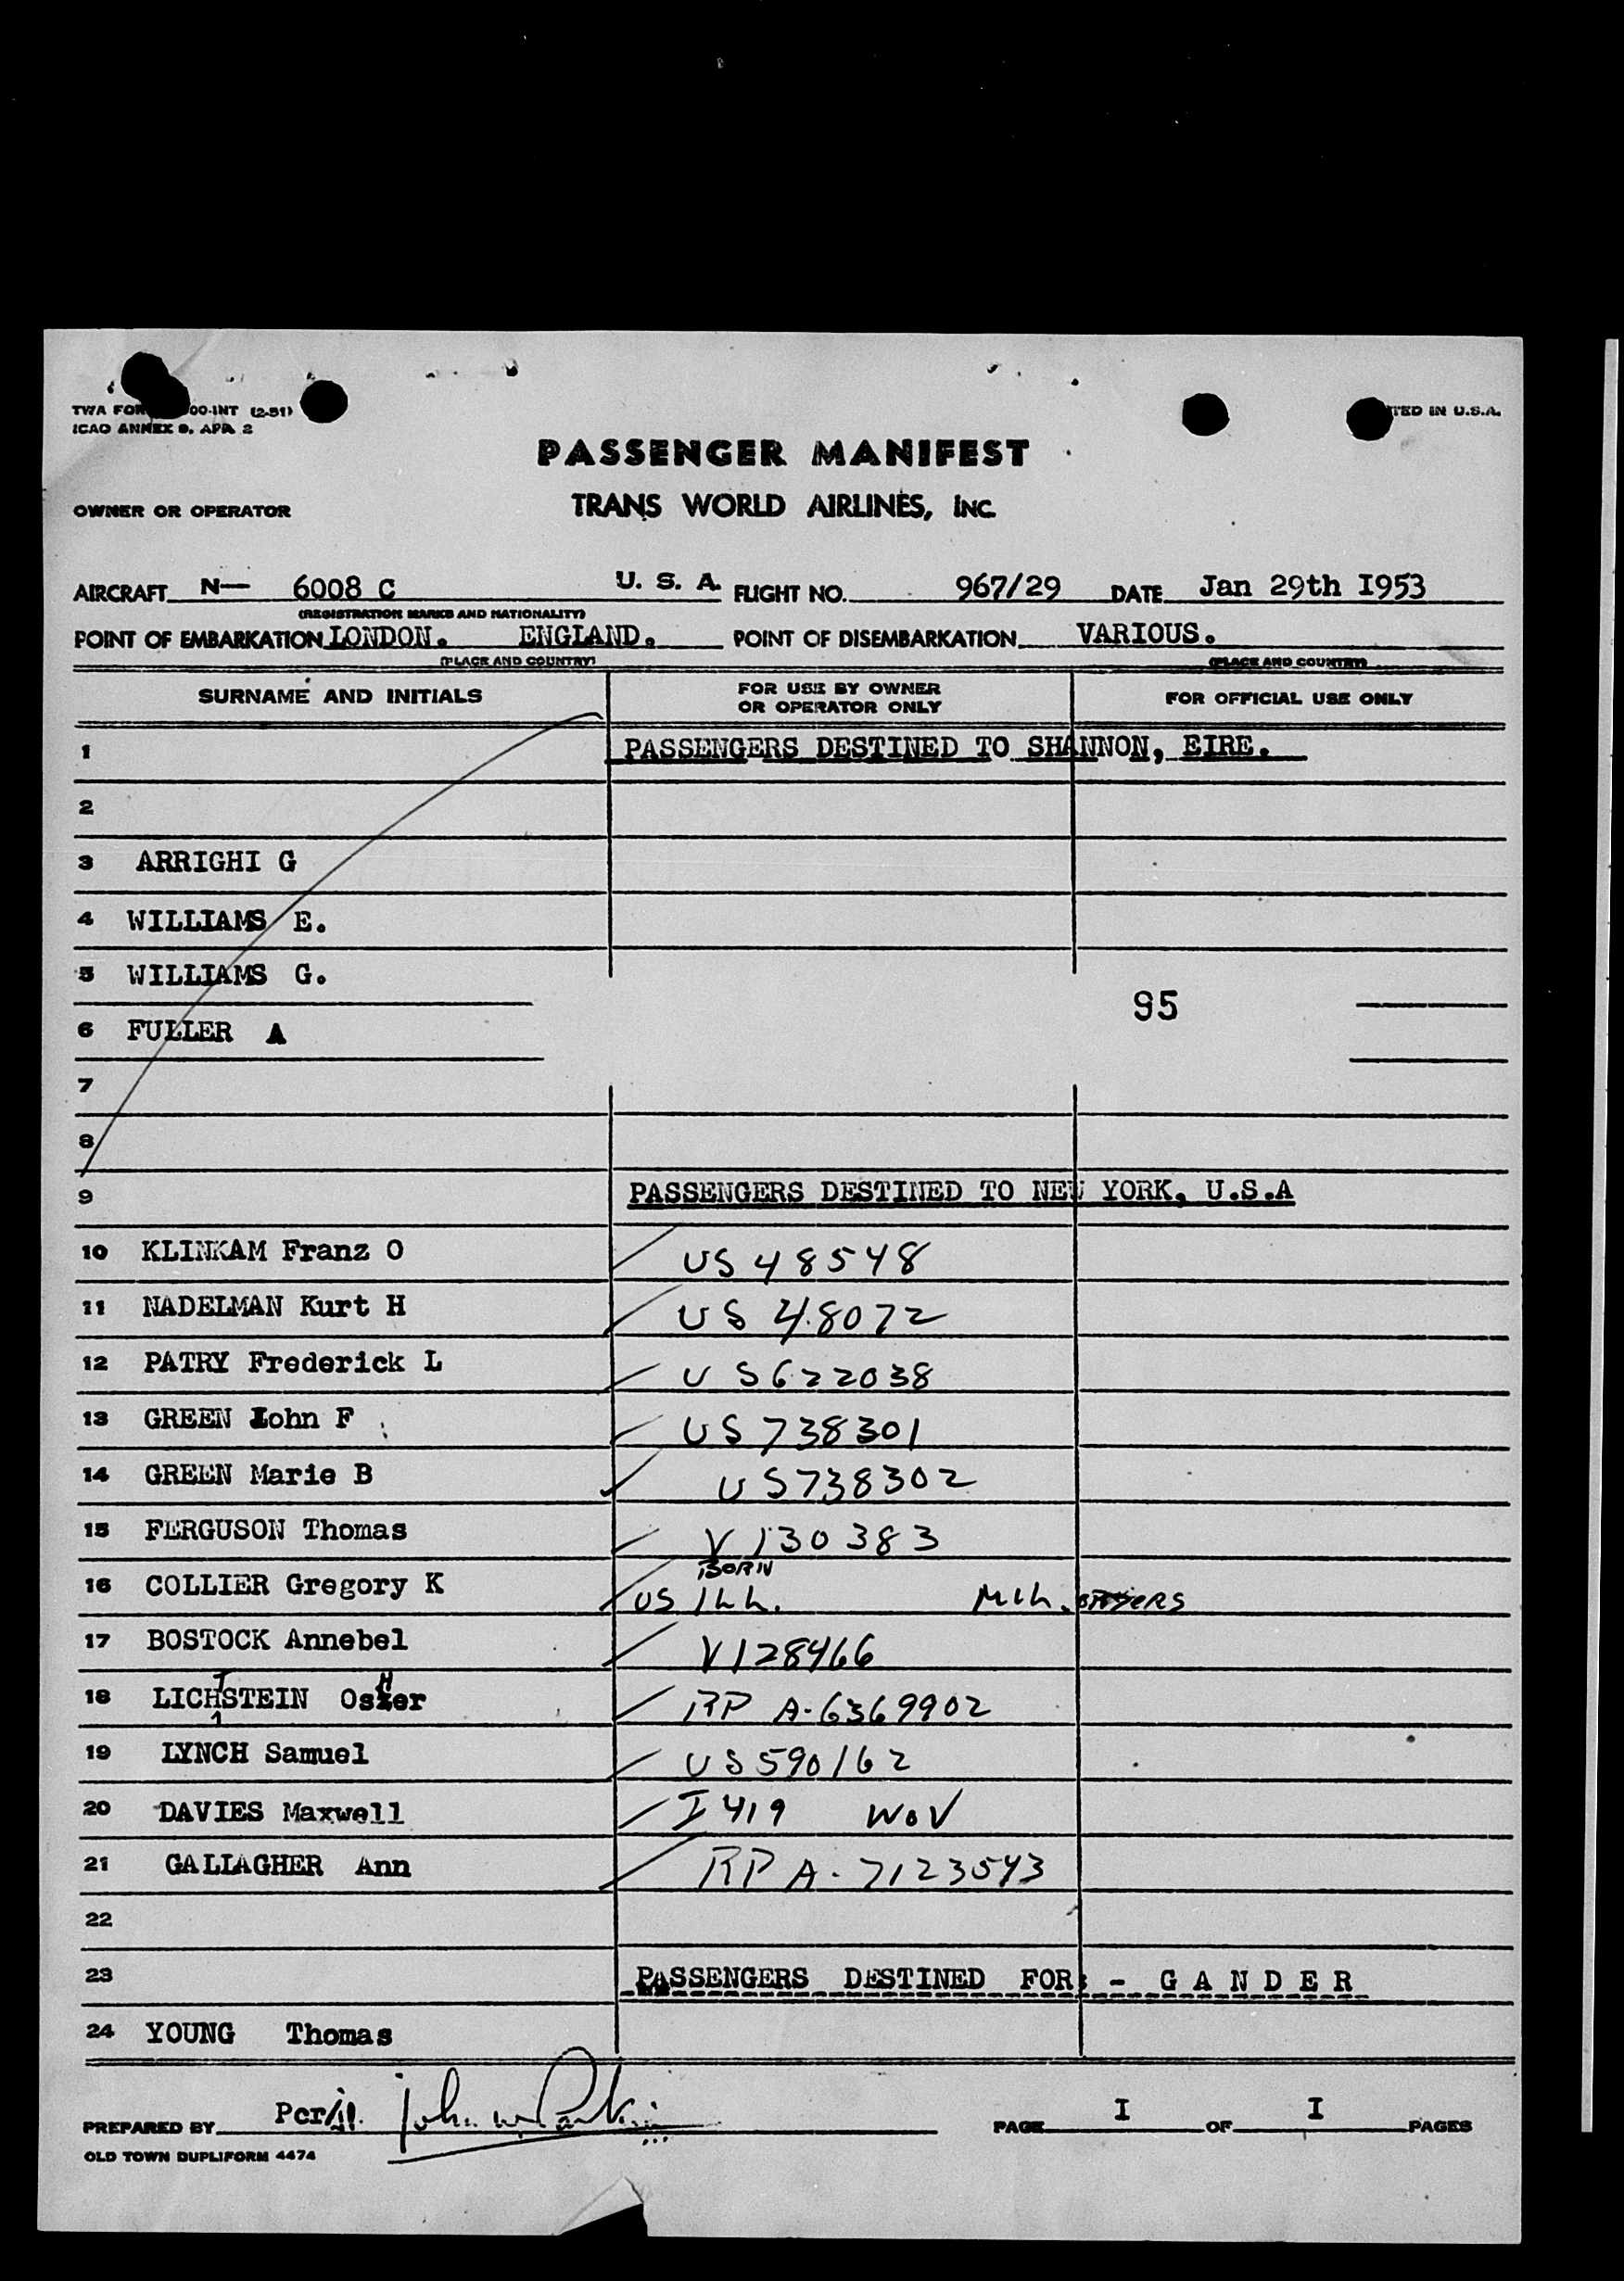 TWA FOR 00-INT (2-51)
ICAO ANNEX 9, APP. 2
TED IN U.S.A.
PASSENGER MANIFEST
OWNER OR OPERATOR TRANS WORLD AIRLINES, INC.
AIRCRAFT N— 6008 C U. S. A. FLIGHT NO. 967/29 DATE Jan 29th I953
(REGISTRATION MARKS AND NATIONALITY)
POINT OF EMBARKATION LONDON. ENGLAND. POINT OF DISEMBARKATION VARIOUS.
(PLACE AND COUNTRY) (PLACE AND COUNTRY)
SURNAME AND INITIALS FOR USE BY OWNER OR OPERATOR ONLY FOR OFFICIAL USE ONLY
1 PASSENGERS DESTINED TO SHANNON, EIRE.
2
3 ARRIGHI G
4 WILLIAMS E.
5 WILLIAMS G.
95
6 FULLER A
7
8
9 PASSENGERS DESTINED TO NEW YORK, U.S.A
10 KLINKAM Franz O US 48548
11 NADELMAN Kurt H US 48072
12 PATRY Frederick L US 622038
13 GREEN John F US 738301
14 GREEN Marie B US 738302
15 FERGUSON Thomas V 130383
16 COLLIER Gregory K US BORN ILL. MIL.
17 BOSTOCK Annebel V128466
18 LICHTSTEIN Osher RP A-6369902
19 LYNCH Samuel US 590162
20 DAVIES Maxwell I 419 WOV
21 GALLAGHER Ann RP A-7123543
22
23 PASSENGERS DESTINED FOR: - G A N D E R
24 YOUNG Thomas
PREPARED BY Per John PAGE I OF I PAGES
OLD TOWN DUPLIFORM 4474